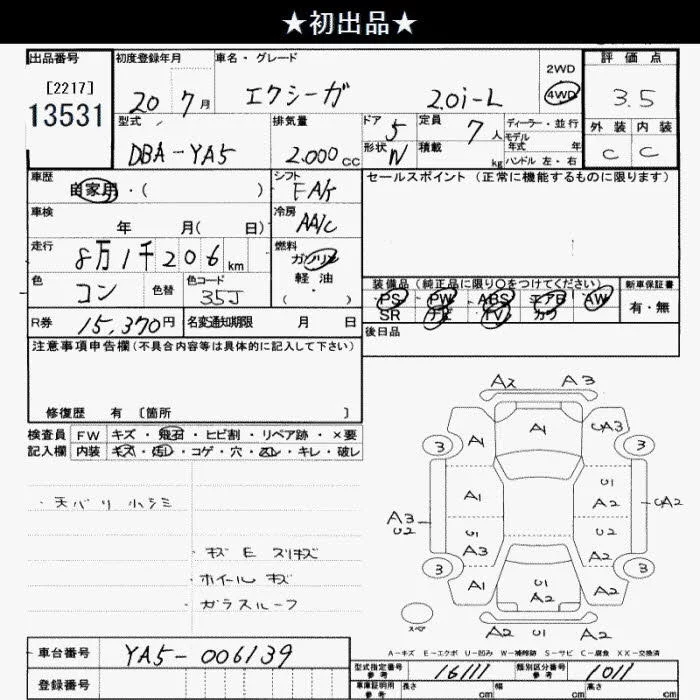 ★初出品★
出品番号 初度登録年月 車名・グレード 2WD 評価点
[2217] 20 7月 エクシーガ 2.0i-L 4WD 3.5
13531
型式 排気量 ドア 5 定員 7人 ディーラー・並行 外装 内装
DBA-YA5 2.000cc 形状 W 積載 kg モデル年式 年 C C
ハンドル 左・右
車歴 シフト セールスポイント (正常に機能するものに限ります)
自家用・( ) FA/t
車検 冷房
年 月( 日) AA/C
走行 燃料
8万1千206km ガソリン
色 色替 色コード 軽油
コン 35J ( )
装備品 (純正品に限り○をつけてください) 新車保証書
PS PW ABS エアB AW 有・無
SR ナビ TV カワ
R券 15,370円 名変通知期限 月 日 後日品
注意事項申告欄(不具合内容等は具体的に記入して下さい)
修復歴 有 [箇所 ]
検査員 FW キズ・飛石・ヒビ割・リペア跡・×要
記入欄 内装 キズ・汚レ・コゲ・穴・スレ・キレ・破レ
・天バリ 小シミ
・キズ E スリキズ
・ホイール キズ
・ガラスルーフ
A2 A3
A1 A1 CA3
3 3
A1 U1 A2 CA2
A3 U2 U2 U2
A3 A2
3 3
A1 U1 A2 A2
スペア
A2 U1 A2
A-キズ E-エクボ U-凹み W-補修跡 S-サビ C-腐食 XX-交換済
車台番号 YA5-006139
型式指定番号 参考 16111 類別区分番号 参考 1011
登録番号 車庫証明用 参考 長さ cm 幅 cm 高さ cm